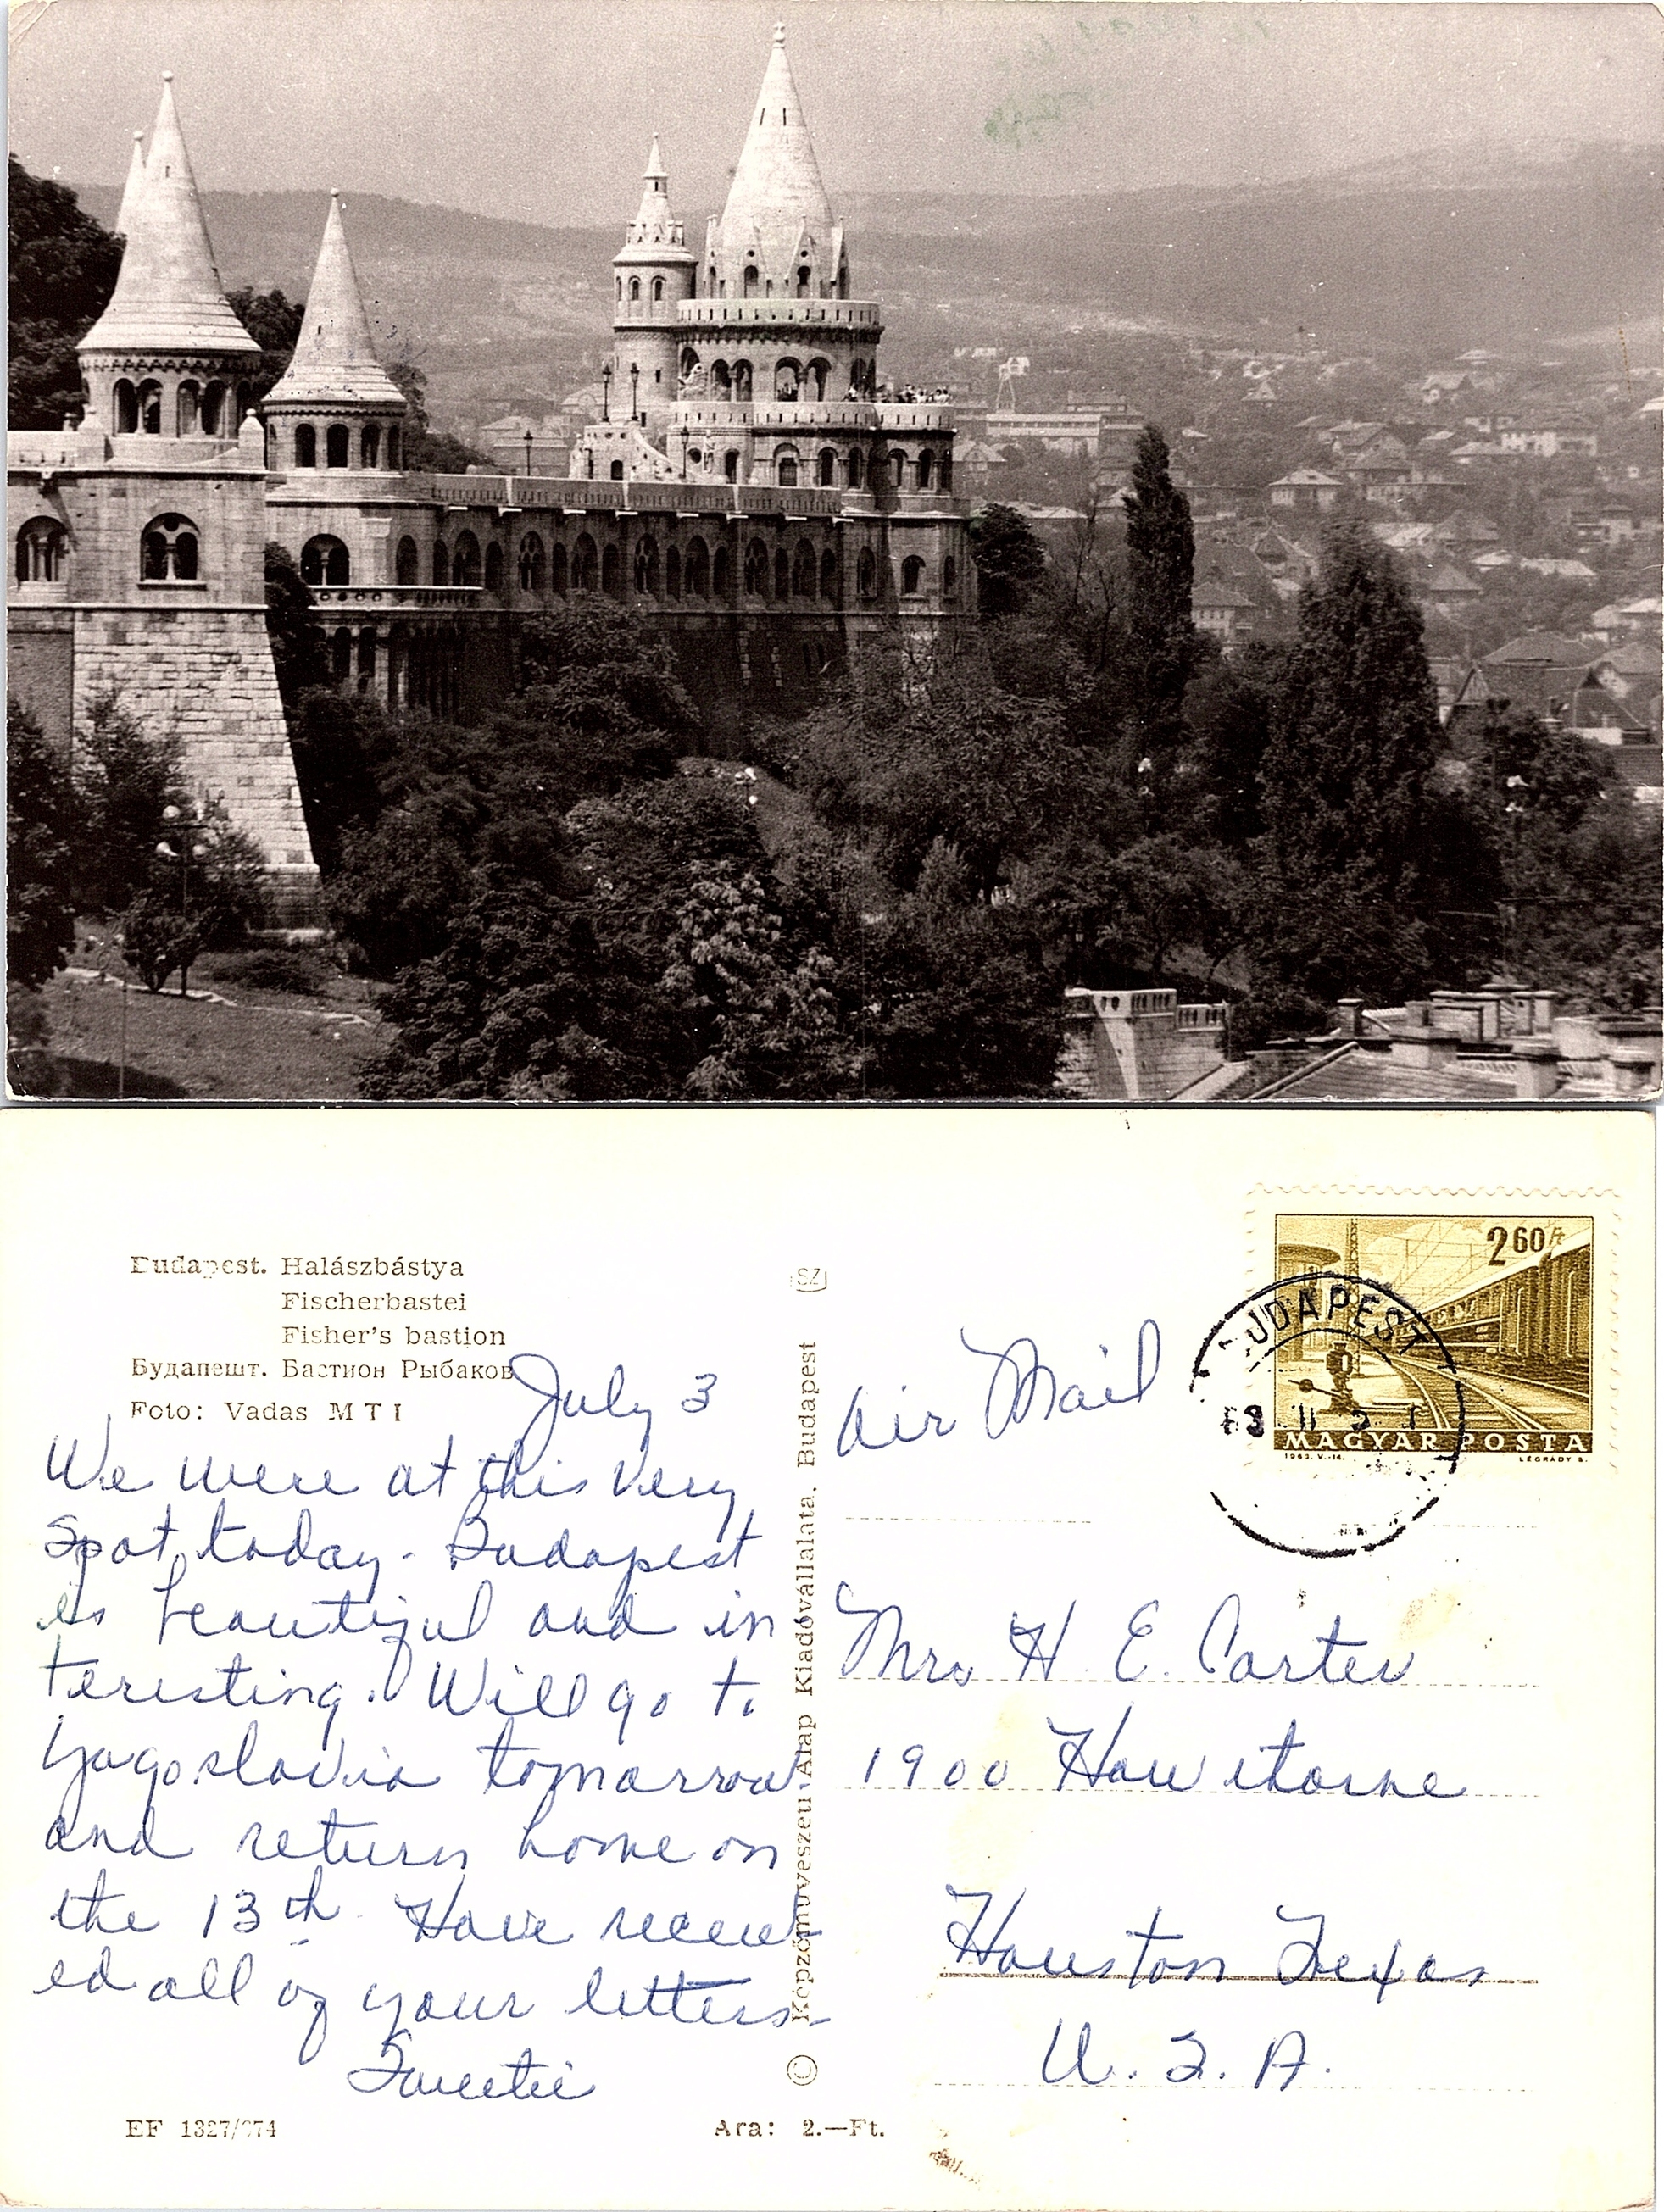 Budapest. Halászbástya
Fischerbastei
Fisher's bastion
Будапешт. Бастион Рыбаков
Foto: Vadas MTI
July 3
We were at this very
spot today. Budapest
is beautiful and in
teresting. Will go to
Yugoslavia tomorrow
and return home on
the 13th. Have receiv-
ed all of your letters-
Sweetie
EF 1327/
Ara: 2.—Ft.
SZ
© Képzőművészeti Alap Kiadóvállalata, Budapest
Air Mail
260 ft
BUDAPEST
MAGYAR POSTA
1963. V.-14. LÉGRÁDY S.
Mrs H. E. Carter
1900 Hawthorne
Houston Texas
U. S. A.